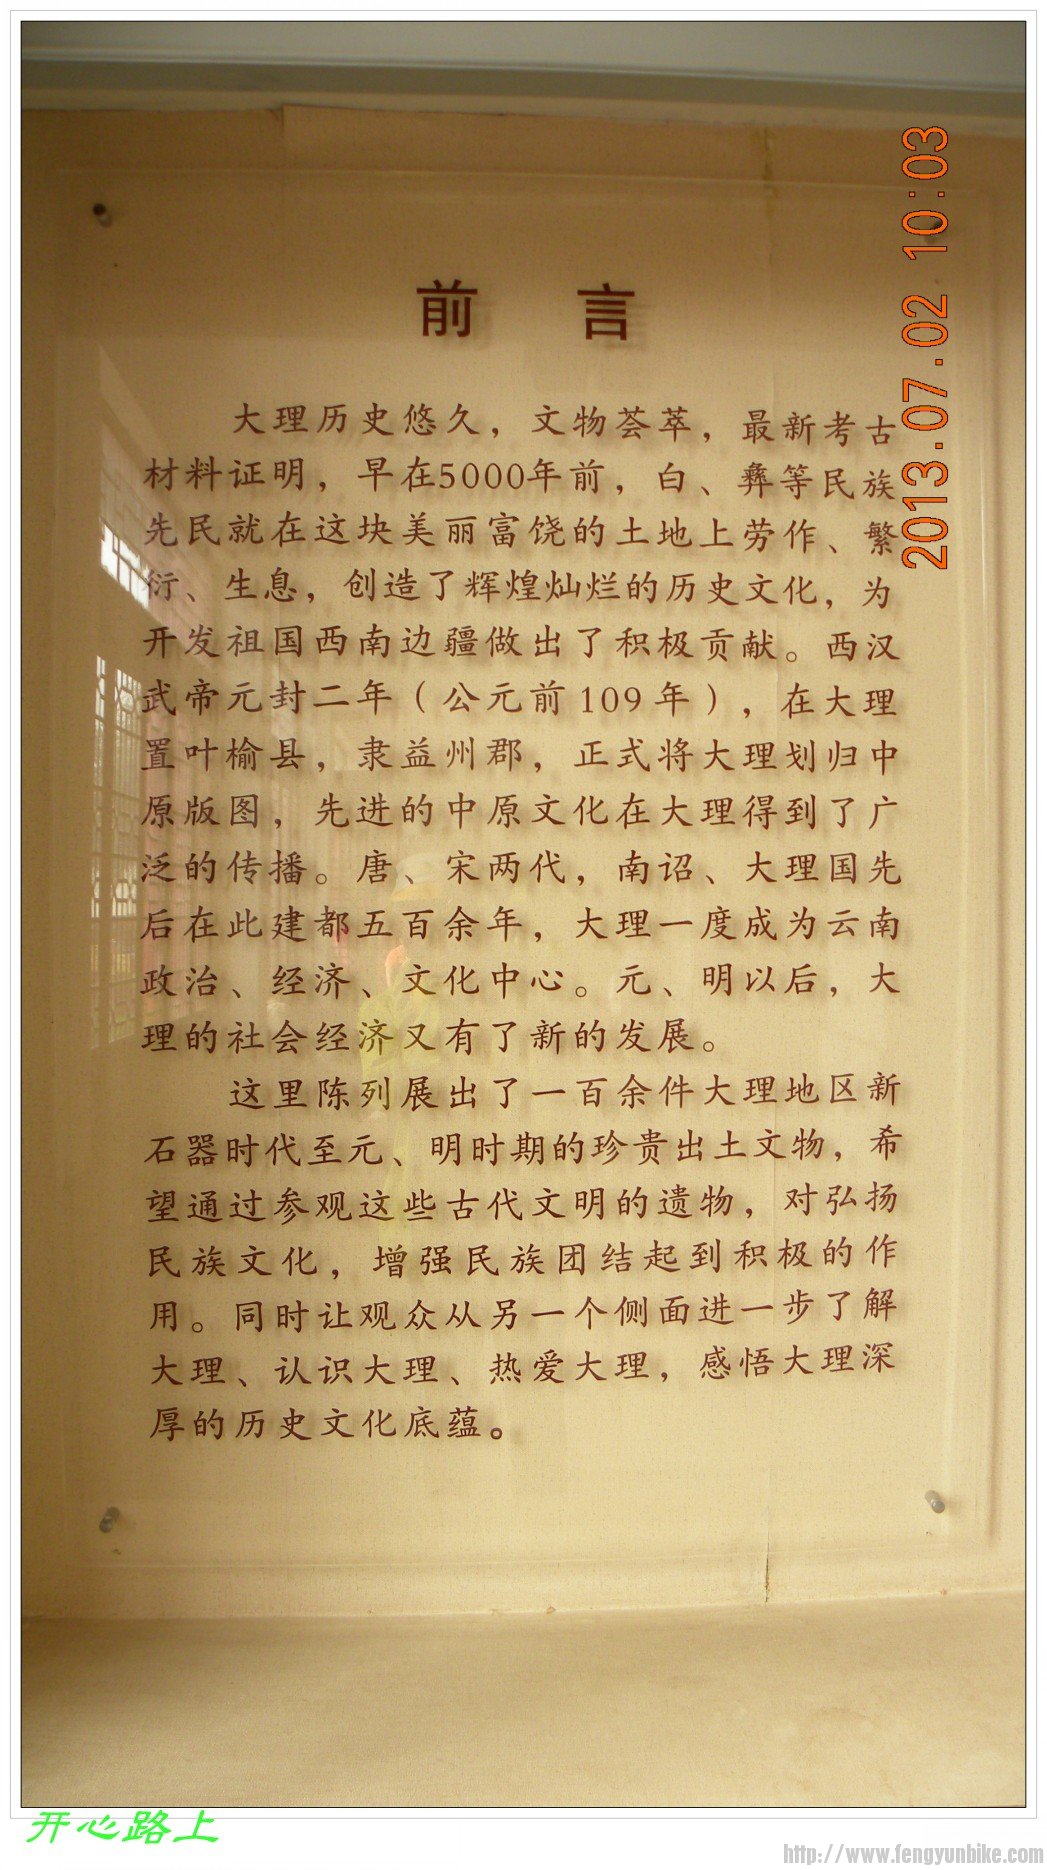 前 言
大理历史悠久，文物荟萃，最新考古
材料证明，早在5000年前，白、彝等民族
先民就在这块美丽富饶的土地上劳作、繁
衍、生息，创造了辉煌灿烂的历史文化，为
开发祖国西南边疆做出了积极贡献。西汉
武帝元封二年（公元前109年），在大理
置叶榆县，隶益州郡，正式将大理划归中
原版图，先进的中原文化在大理得到了广
泛的传播。唐、宋两代，南诏、大理国先
后在此建都五百余年，大理一度成为云南
政治、经济、文化中心。元、明以后，大
理的社会经济又有了新的发展。
这里陈列展出了一百余件大理地区新
石器时代至元、明时期的珍贵出土文物，希
望通过参观这些古代文明的遗物，对弘扬
民族文化，增强民族团结起到积极的作
用。同时让观众从另一个侧面进一步了解
大理、认识大理、热爱大理，感悟大理深
厚的历史文化底蕴。
2013.07.02 10:03
开心路上
http://www.fengyunbike.com